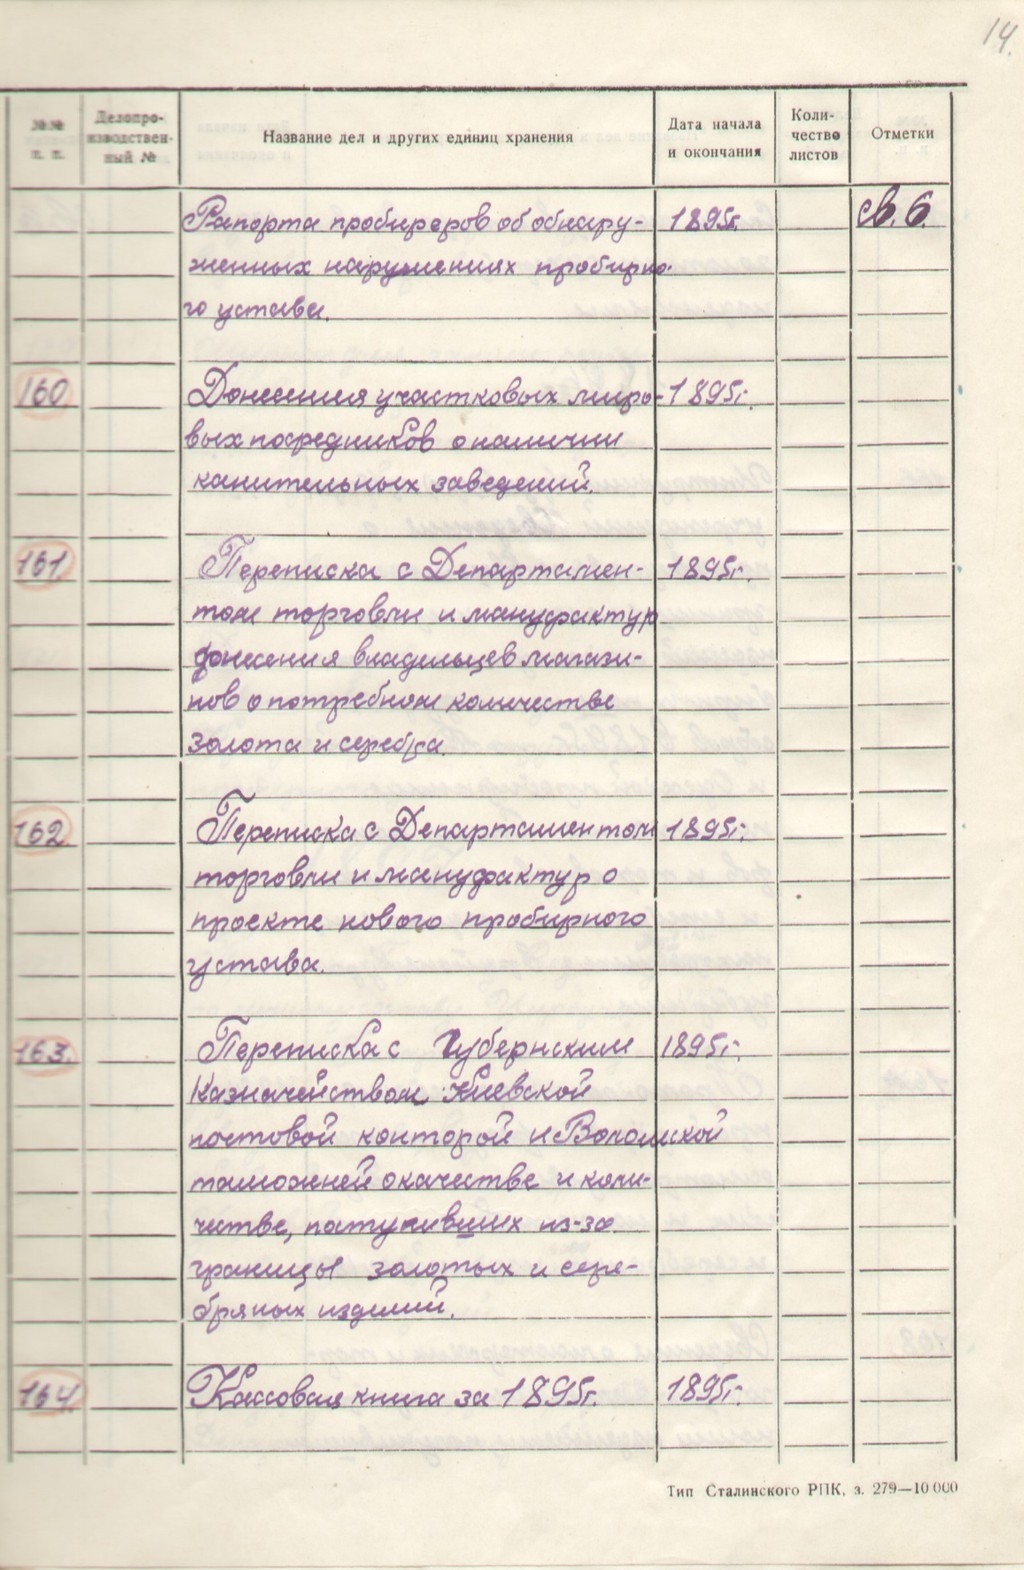 14.
№№ п. п.
Делопроизводственный №
Название дел и других единиц хранения
Дата начала и окончания
Количество листов
Отметки
Рапорта пробиреров об обнару- 1895г. св. 6.
женных нарушениях пробирно-
го устава.
160 Донесения участковых миро- 1895г.
вых посредников о наличии
канительных заведений.
161 Переписка с Департамен- 1895г.
том торговли и мануфактур
донесения владельцев магази-
нов о потребном количестве
золота и серебра.
162. Переписка с Департаментом 1895г.
торговли и мануфактур о
проекте нового пробирного
устава.
163. Переписка с Губернским 1895г.
Казначейством, Киевской
почтовой конторой и
таможней о качестве и коли-
честве, поступивших из-за
границы золотых и сере-
бряных изделий.
164. Кассовая книга за 1895г. 1895г.
Тип Сталинского РПК, з. 279—10 000